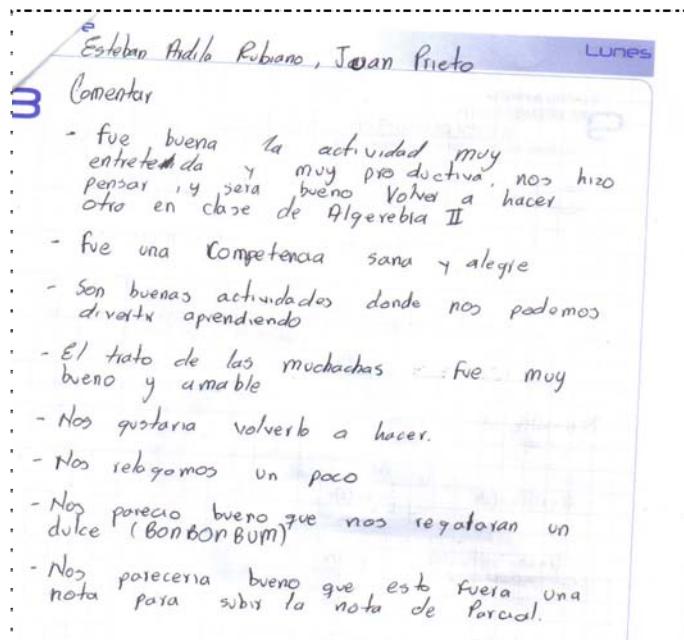 Esteban Ardila Rubiano, Juan Prieto
Lunes
Comentar
- fue buena la actividad muy
entretenida y muy productiva, nos hizo
pensar, y sera bueno Volver a hacer
otro en clase de Algerebla II
- fue una Competencia sana y alegre
- Son buenas actividades donde nos podemos
divertir aprendiendo
- El trato de las muchachas fue muy
bueno y amable
- Nos gustaria volverlo a hacer.
- Nos relagamos un poco
- Nos parecio bueno que nos regalaran un
dulce (BON BON BUM)
- Nos pareceria bueno que esto fuera una
nota para subir la nota de Parcial.